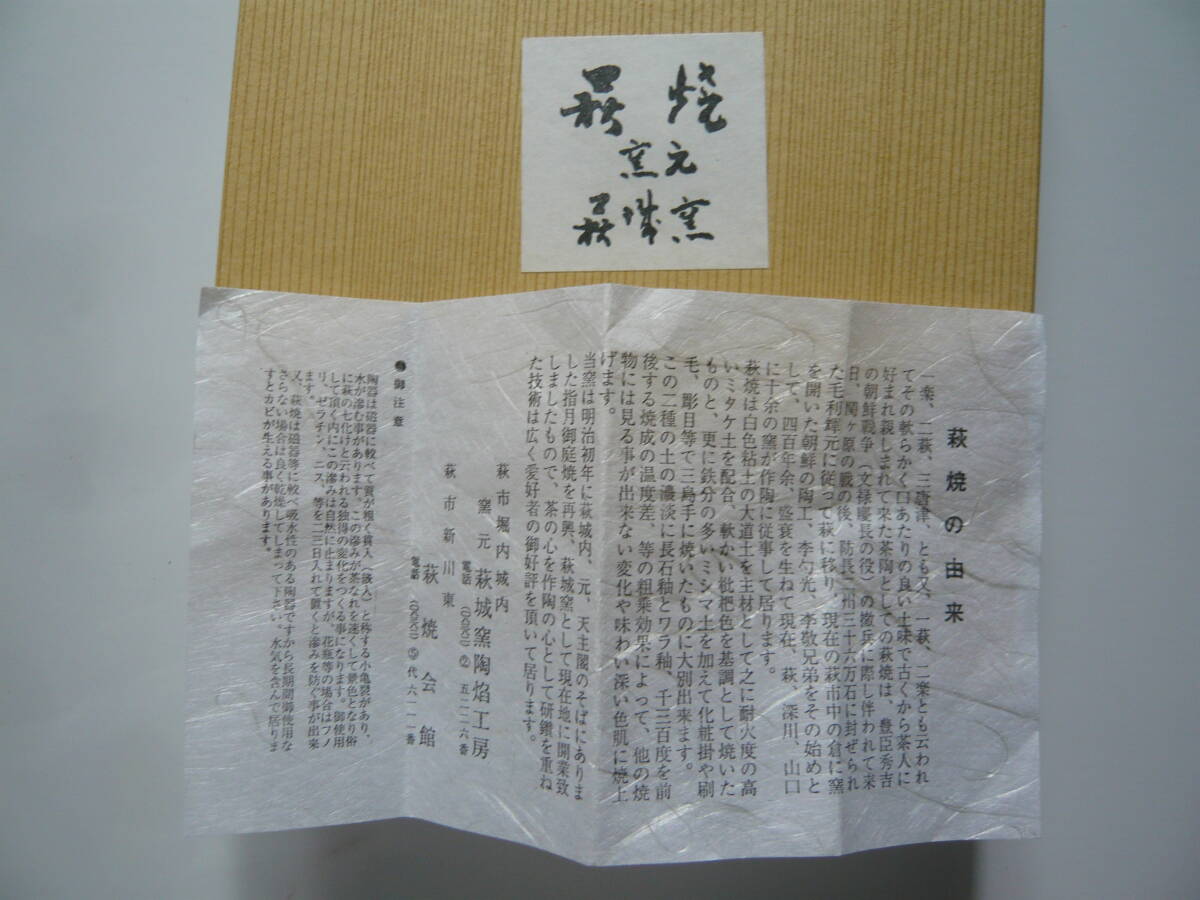 萩焼
窯元
萩城窯
萩焼の由来
一楽、二萩、三唐津、とも又、一萩、二楽とも云われ
てその軟らかく口あたりの良い土味で古くから茶人に
好まれ親しまれて来た茶陶としての萩焼は、豊臣秀吉
の朝鮮戦争(文禄慶長の役)の徴兵に際し伴われて来
日、関ヶ原の戦の後、防長二州三十六万石に封ぜられ
た毛利輝元に従って萩に移り、現在の萩市中の倉に窯
を開いた朝鮮の陶工、李勺光、李敬兄弟をその始めと
して、四百年余、盛衰を生ねて現在、萩、深川、山口
に十余の窯が作陶に従事して居ります。
萩焼は白色粘土の大道土を主材として之に耐火度の高
いミタケ土を配合、軟かい枇杷色を基調として焼いた
ものと、更に鉄分の多いミシマ土を加えて化粧掛や刷
毛、彫目等で三島手に焼いたものに大別出来ます。
この二種の土の濃淡に長石釉とワラ釉、千三百度を前
後する焼成の温度差、等の粗乗効果によって、他の焼
物には見る事が出来ない変化や味わい深い色肌に焼上
げます。
当窯は明治初年に萩城内、元、天主閣のそばにありま
した指月御庭焼を再興、萩城窯として現在地に開業致
しましたもので、茶の心を作陶の心として研鑽を重ね
た技術は広く愛好者の御好評を頂いて居ります。
萩市堀内城内
窯元 萩城窯陶焰工房
電話 (〇八三八二) ② 五二二六番
萩市新川東
萩焼会館
電話 (〇八三八二) ⑤ 代六一一一番
●御注意
陶器は磁器に較べて質が粗く貫入(嵌入)と称する小亀裂があり、
水が滲む事があります。この滲みが茶なれを速くして景色となり俗
に萩の七化けと云われる独得の変化をつくる事になります。御使用
して頂く内にこの滲みは自然に止まりますが、花瓶等の場合はフノ
リ、ゼラチン、ニス、等を二三日入れて置くと滲みを防ぐ事が出来
ます。
又、萩焼は磁器等に較べ吸水性のある陶器ですから長期間御使用な
さらない場合は良く乾燥してしまって下さい。水気を含んで居りま
すとカビが生える事があります。